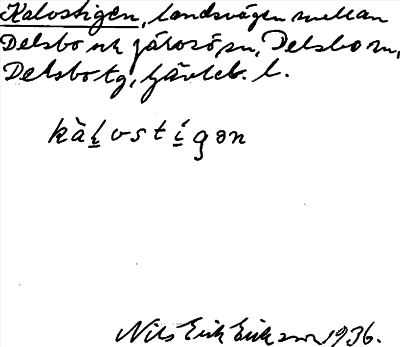 Kalvstigen, landsvägen mellan
Delsbo och Järvsö, sn, Delsbo sn,
Delsbo tg, Gävleb. l.
kàlvstígən
Nils Erik Eriksson 1936.